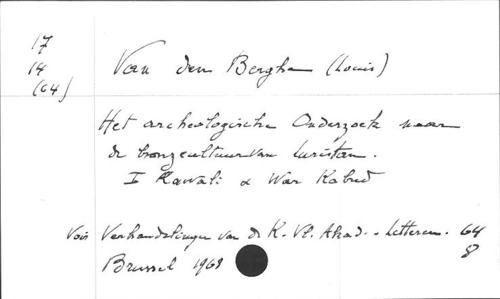 17
14
(64)
Van den Berghe (Louis)
Het archeologische Onderzoek naar
de bronzecultuur van Luristan.
I Kawali & War Kabud
Vois Verhandelingen van de K. Vl. Akad. - Letteren. 64
8
Brussel 1968